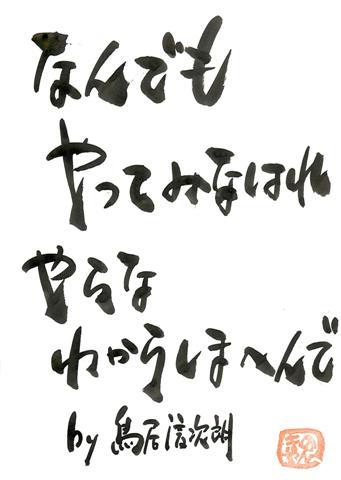 なんでも
やってみなはれ
やらな
わからしまへんで
by 鳥居信次郎